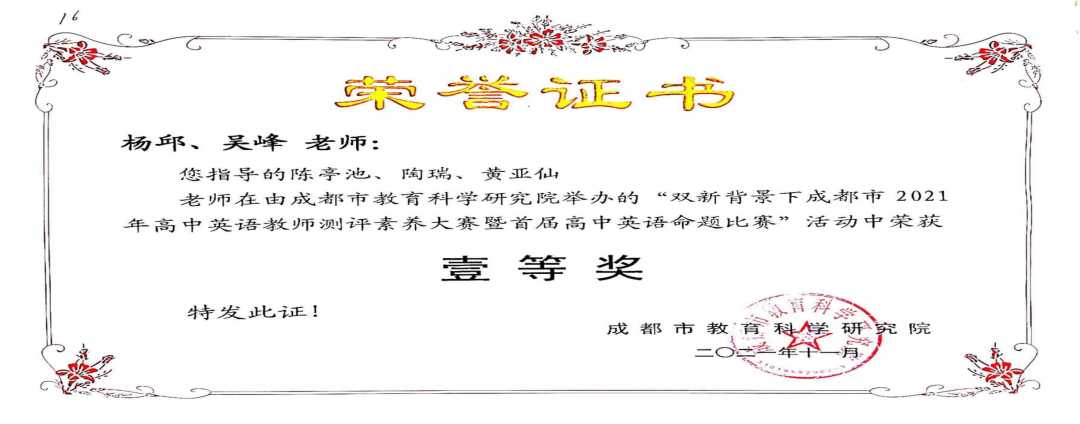 16
荣誉证书
杨邱、吴峰 老师：
您指导的陈亭池、陶瑞、黄亚仙
老师在由成都市教育科学研究院举办的“双新背景下成都市 2021
年高中英语教师测评素养大赛暨首届高中英语命题比赛”活动中荣获
壹等奖
特发此证！
成都市教育科学研究院
二〇二一年十一月